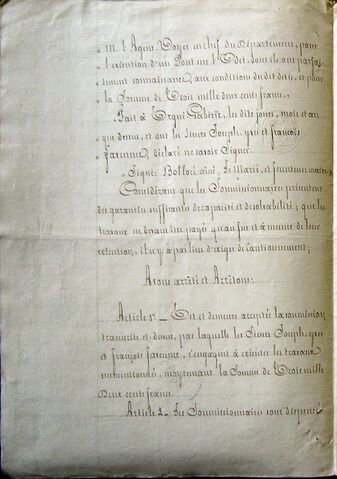 „ M. l'Agent-Voyer en chef du Département, pour
„ l'exécution d'un Pont sur l'Odet, dont ils ont parfai-
„ tement connaissance, aux conditions du dit devis, et pour
„ la Somme de Trois mille deux cents francs.
„ Fait à Ergué-Gabéric, les dits jour, mois et an
„ que dessus, et ont les Sieurs Joseph, yves et françois
„ farenner, déclaré ne savoir Signer.
„ Signé: Bolloré aîné, Le Marié, et
Considérant que les Soumissionnaires présentent
des garanties suffisantes de capacité et de solvabilité; que les
travaux ne devant être payés qu'au fur et à mesure de leur
exécution, il n'y a pas lieu d'exiger de Cautionnement;
Avons arrêté et Arrêtons:
Article 1er_ Est et demeure acceptée la soumission
transcrite ci-dessus, par laquelle les Sieurs Joseph, yves
et françois farenner, s'engagent à exécuter les travaux
susmentionnés, moyennant la Somme de Trois mille
Deux cents francs.
Article 2_ Les Soumissionnaires sont dispensés